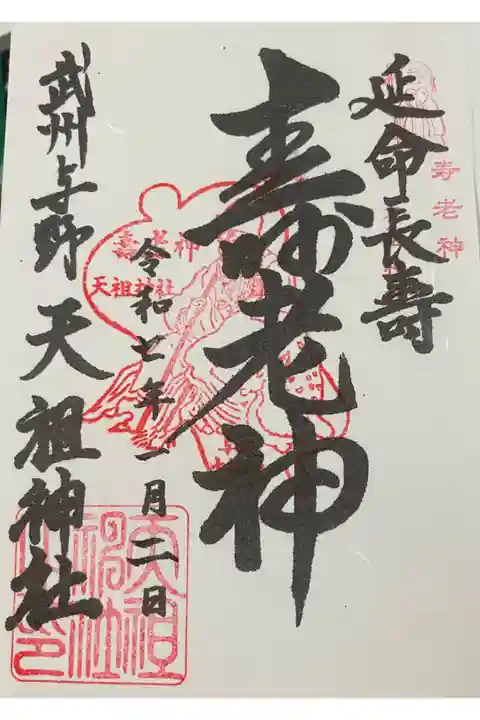 延命長壽
寿老神
壽老神
令和七年一月二日
壽老神
天祖神社
武州与野
天祖神社
天祖神社